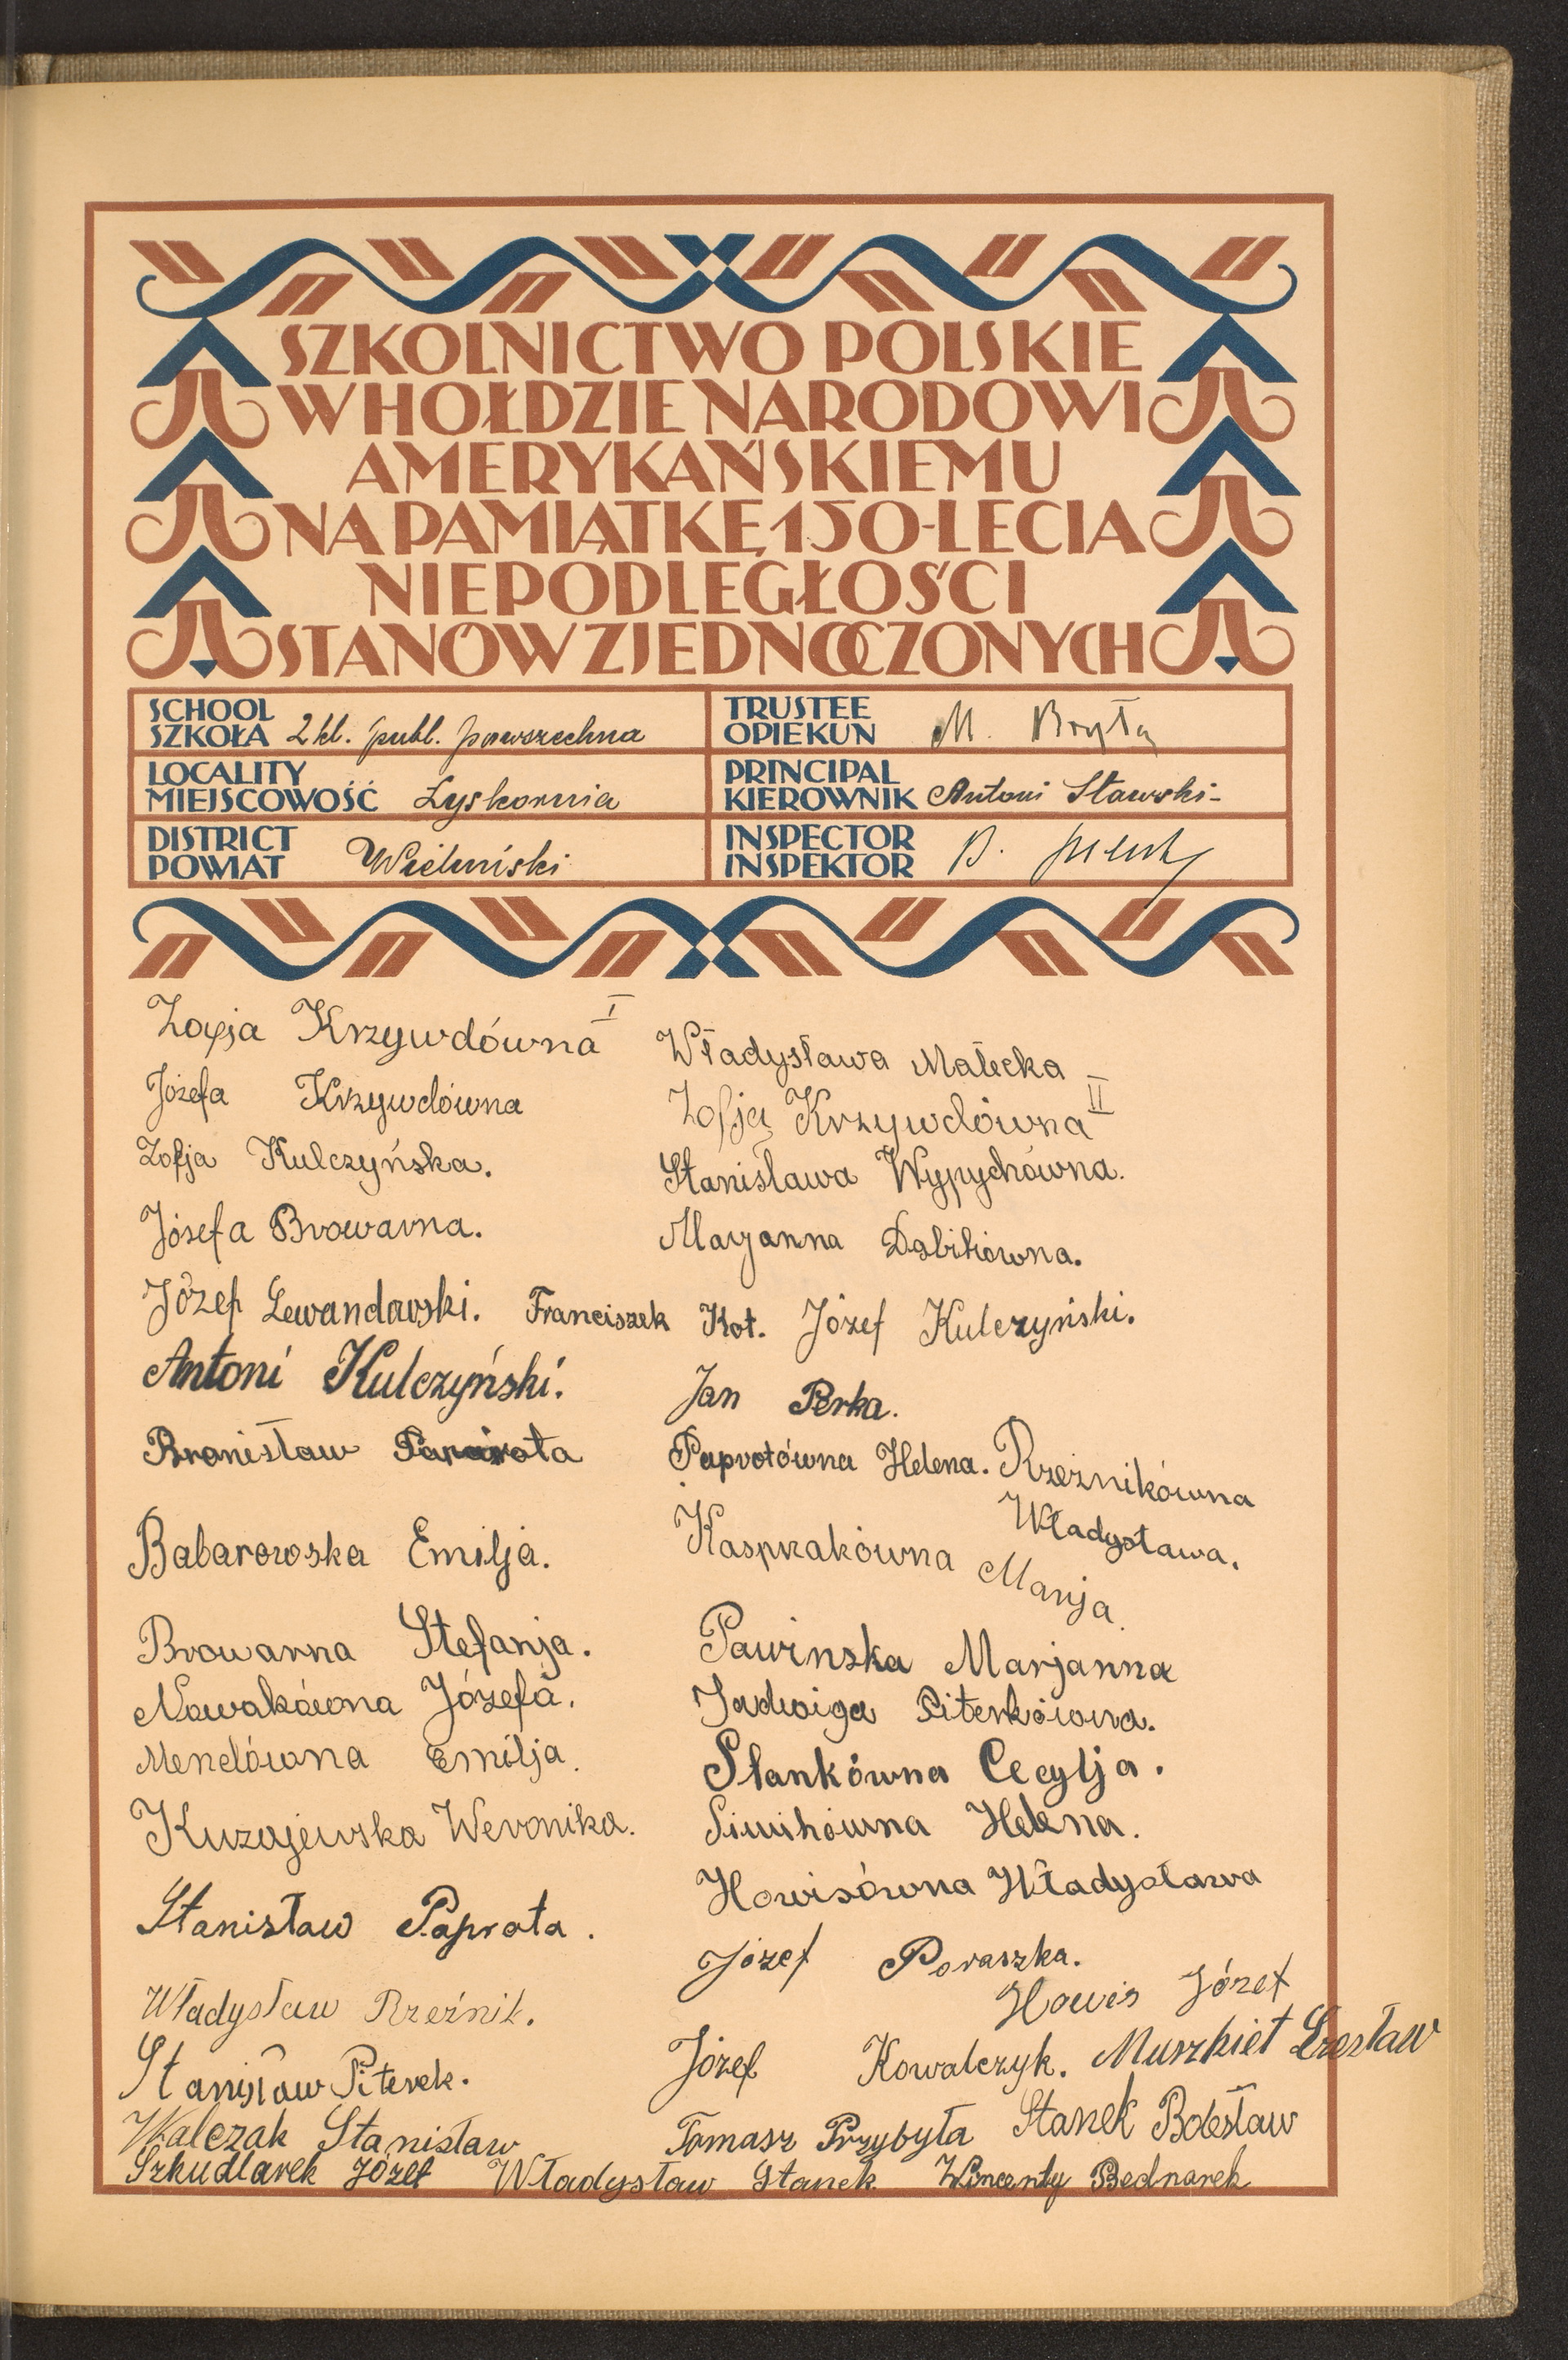 SZKOLNICTWO POLSKIE
W HOŁDZIE NARODOWI
AMERYKAŃSKIEMU
NA PAMIĄTKĘ 150-LECIA
NIEPODLEGŁOŚCI
STANÓW ZJEDNOCZONYCH
SCHOOL
SZKOŁA 2 kl. publ. powszechna
TRUSTEE
OPIEKUN M. Bryła
LOCALITY
MIEJSCOWOŚĆ Łyskornia
PRINCIPAL
KIEROWNIK Antoni Sławski
DISTRICT
POWIAT Wieluński
INSPECTOR
INSPEKTOR B.
Zofja Krzywdówna I
Władysława Małecka
Józefa Krzywdówna
Zofja Krzywdówna II
Zofja Kulczyńska.
Stanisława Wypychówna.
Józefa Browarna.
Maryanna
Józef Lewandowski. Franciszek Kot. Józef Kulczyński.
Antoni Kulczyński.
Jan Perka.
Bronisław
Paprotówna Helena. Rzeźnikówna
Władysława.
Babarowska Emilja.
Kasprzakówna Marja
Browarna Stefanja.
Pawinska Marjanna
Nowakówna Józefa.
Jadwiga Piterkówna.
Menclówna Emilja.
Stankówna Cecylja.
Kuzajewska Weronika.
Helena.
Howisówna Władysława
Stanisław Paprota.
Józef Poraszka.
Howis Józef
Władysław Rzeźnik.
Józef Kowalczyk. Muszkiet Czesław
Stanisław Piterek.
Walczak Stanisław
Tomasz Przybyła Stanek Bolesław
Szkudlarek Józef Władysław Stanek Wincenty Bednarek